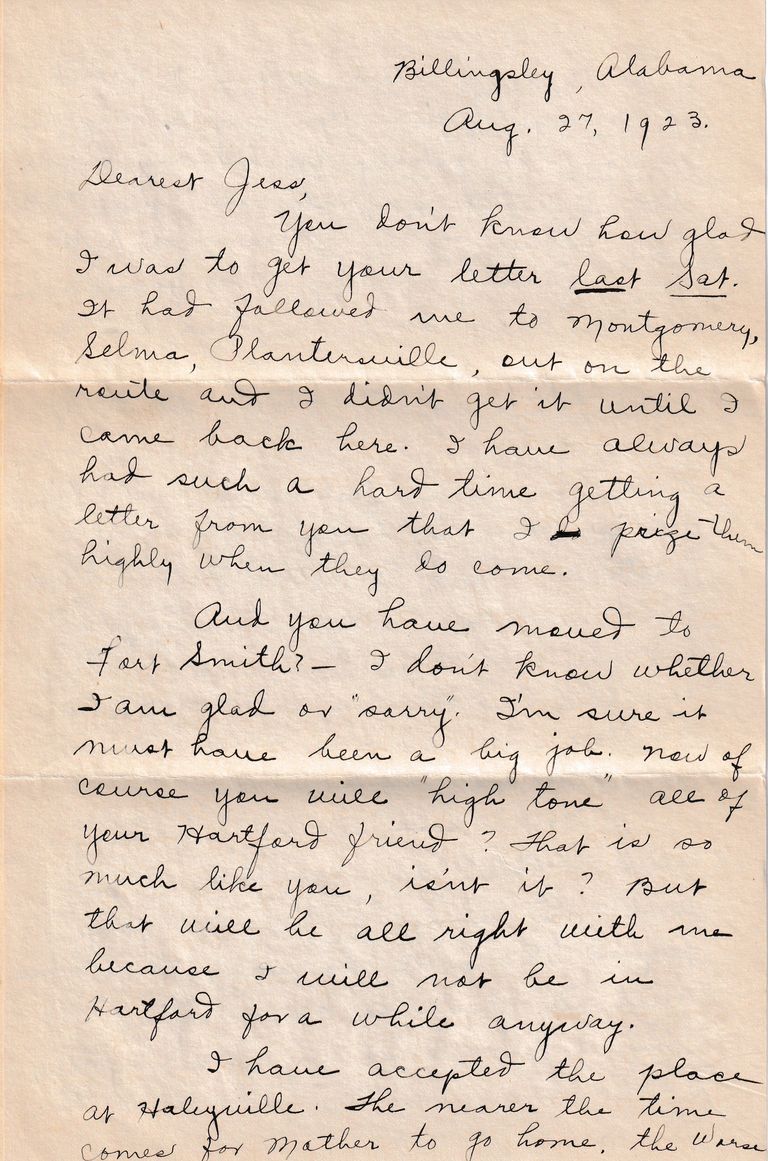 Billingsley, Alabama
Aug. 27, 1923.
Dearest Jess,
You don't know how glad
I was to get your letter last Sat.
It had followed me to Montgomery,
Selma, Plantersville, out on the
route and I didn't get it until I
came back here. I have always
had such a hard time getting a
letter from you that I prize them
highly when they do come.
And you have moved to
Fort Smith? – I don't know whether
I am glad or "sorry". I'm sure it
must have been a big job. Now of
course you will "high tone" all of
your Hartford friend? That is so
much like you, isn't it? But
that will be all right with me
because I will not be in
Hartford for a while anyway.
I have accepted the place
at Haleyville. The nearer the time
comes for Mother to go home, the worse